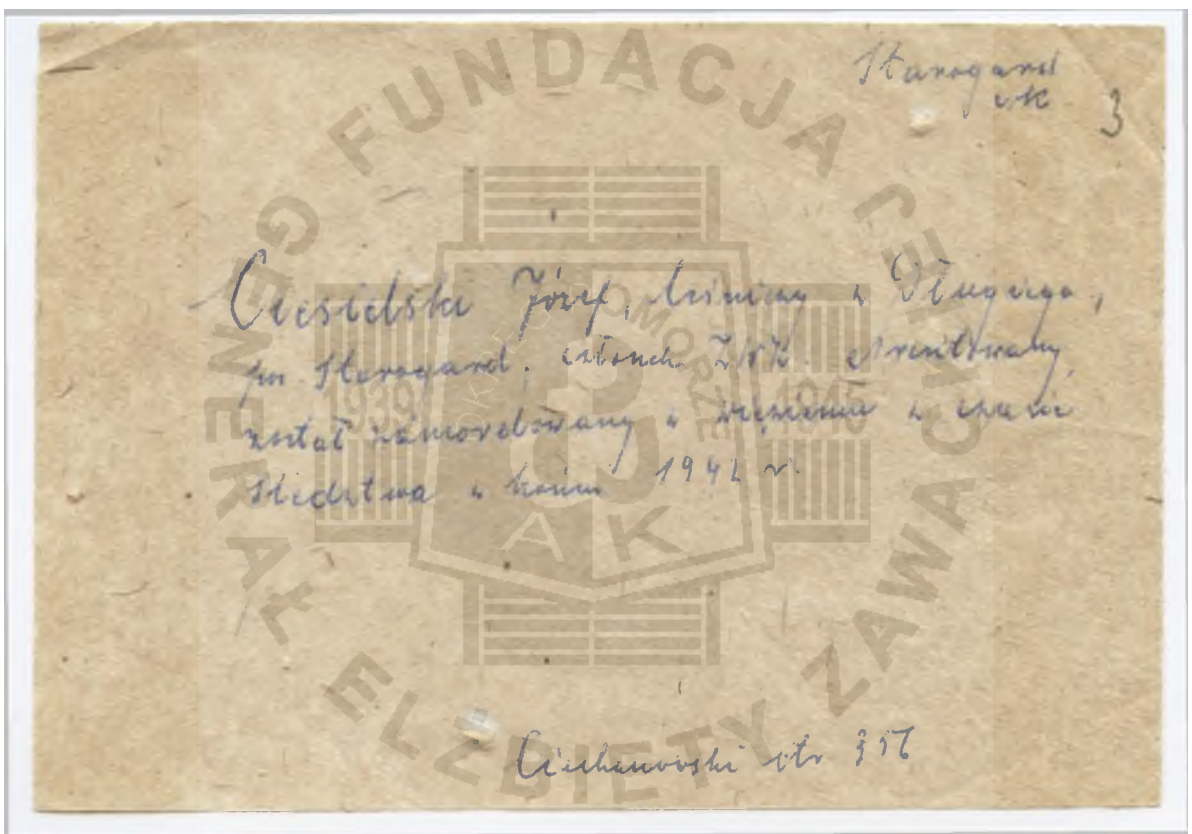 Starogard
AK 3
Ciesielski Józef, leśniczy z Długiego,
pow. Starogard, członek ZWZ. Aresztowany,
został zamordowany w więzieniu w czasie
śledztwa w końcu 1942 r.
Ciechanowski str
FUNDACJA GENERAŁ ELŻBIETY ZAWACKIEJ
POMORZE
1939 1945
AK